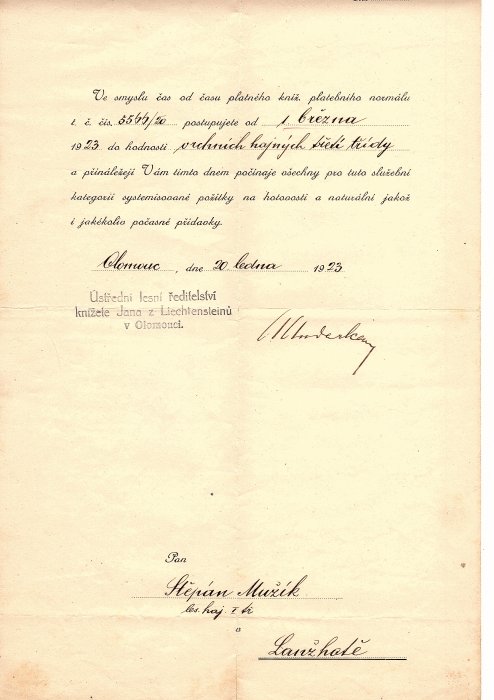 Ve smyslu čas od času platného kníž. platebního normálu
t. č. čís. 5544/20 postupujete od 1. března
1923 do hodnosti vrchních hajných třetí třídy
a přináležejí Vám tímto dnem počínaje všechny pro tuto služební
kategorii systemisované požitky na hotovosti a naturální jakož
i jakékoliv počasné přídavky.
Olomouc, dne 20 ledna 1923
Ústřední lesní ředitelství
knížete Jana z Liechtensteinů
v Olomouci.
Pan
Štěpán Mužík
les. haj. I tř
v
Lanžhotě